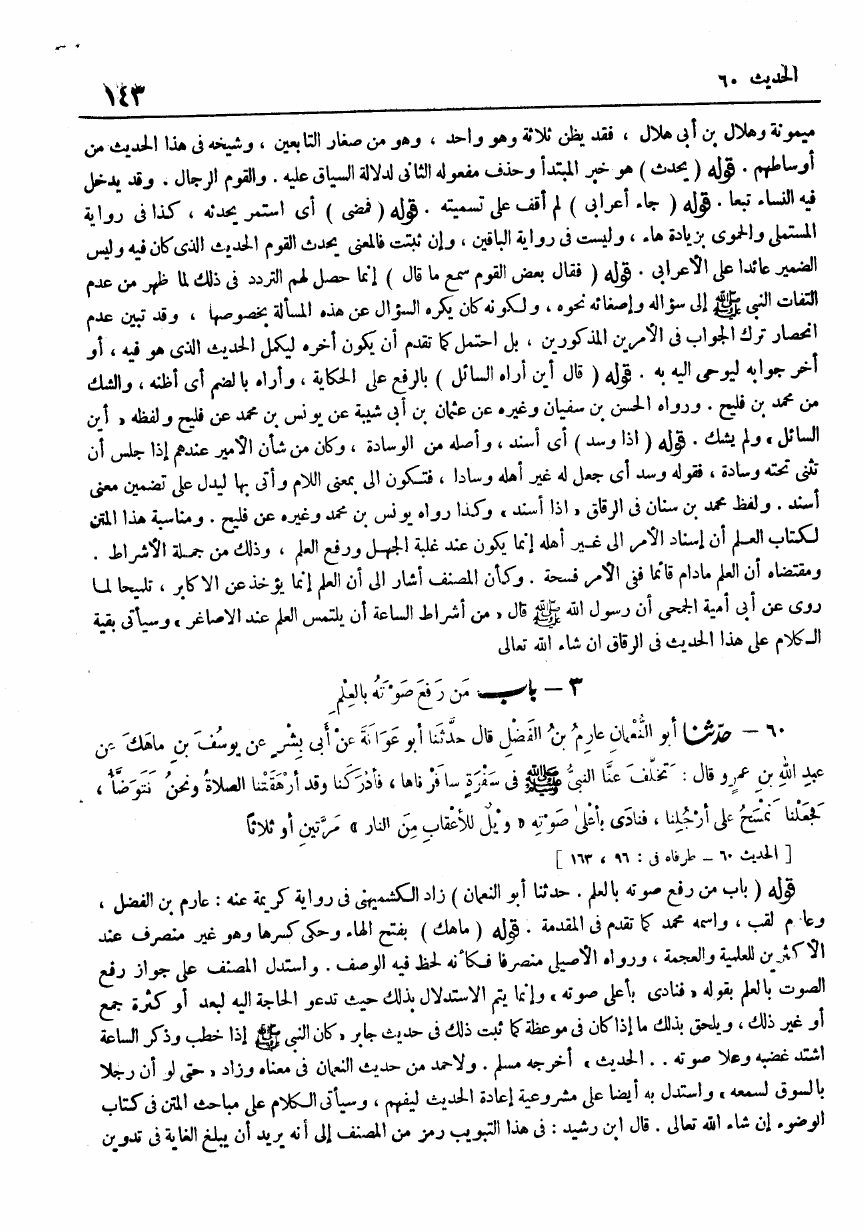 الحديث ٦٠
١٤٣
ميمونة وهلال بن أبى هلال ، فقد يظن ثلاثة وهو واحد ، وهو من صغار التابعين ، وشيخه فى هذا الحديث من
أوساطهم . قوله ( يحدث ) هو خبر المبتدأ وحذف مفعوله الثانى لدلالة السياق عليه . والقوم الرجال . وقد يدخل
فيه النساء تبعا . قوله ( جاء أعرابى ) لم أقف على تسميته . قوله ( فمضى ) أى استمر يحدثه ، كذا فى رواية
المستملى والحموى بزيادة هاء ، وليست فى رواية الباقين ، وإن ثبتت فالمعنى يحدث القوم الحديث الذى كان فيه وليس
الضمير عائدا على الأعرابى . قوله ( فقال بعض القوم سمع ما قال ) إنما حصل لهم التردد فى ذلك لما ظهر من عدم
التفات النبى ﷺ إلى سؤاله وإصغائه نحوه ، ولكونه كان يكره السؤال عن هذه المسألة بخصوصها ، وقد تبين عدم
انحصار ترك الجواب فى الأمرين المذكورين ، بل احتمل كما تقدم أن يكون أخره ليكمل الحديث الذى هو فيه ، أو
أخر جوابه ليوحى اليه به . قوله ( قال أين أراه السائل ) بالرفع على الحكاية ، وأراه بالضم أى أظنه ، والشك
من محمد بن فليح . ورواه الحسن بن سفيان وغيره عن عثمان بن أبى شيبة عن يونس بن محمد عن فليح ولفظه « أين
السائل » ولم يشك . قوله ( اذا وسد ) أى أسند ، وأصله من الوسادة ، وكان من شأن الأمير عندهم إذا جلس أن
تثنى تحته وسادة ، فقوله وسد أى جعل له غير أهله وسادا ، فتكون الى بمعنى اللام وأتى بها ليدل على تضمين معنى
أسند . ولفظ محمد بن سنان فى الرقاق « اذا أسند » وكذا رواه يونس بن محمد وغيره عن فليح . ومناسبة هذا المتن
لكتاب العلم أن إسناد الأمر الى غير أهله إنما يكون عند غلبة الجهل ورفع العلم ، وذلك من جملة الأشراط .
ومقتضاه أن العلم مادام قائما ففى الأمر فسحة . وكأن المصنف أشار الى أن العلم إنما يؤخذ عن الاكابر ، تلميحا لما
روى عن أبى أمية الجمحى أن رسول الله ﷺ قال « من أشراط الساعة أن يلتمس العلم عند الاصاغر » وسيأتى بقية
الكلام على هذا الحديث فى الرقاق ان شاء الله تعالى
٣ – باب مَن رَفَعَ صَوْتَهُ بالعِلْمِ
٦٠ – حدّثنا أبو النُّعمانِ عارِمُ بنُ الفَضْلِ قال حدَّثَنا أبو عَوانَةَ عنْ أَبى بِشْرٍ عن يوسُفَ بنِ ماهَكَ عن
عبدِ اللهِ بنِ عمرٍو قال : تَخلَّفَ عنَّا النبىُّ ﷺ فى سَفْرَةٍ سافَرْناها ، فأدْرَكَنا وقد أرْهَقَتْنا الصلاةُ ونحنُ نَتَوَضَّأُ ،
فجَعَلْنا نَمْسَحُ على أرْجُلِنا ، فنادَى بأعْلَى صَوْتِهِ « ويْلٌ للأعْقابِ مِنَ النار » مَرَّتينِ أو ثلاثاً
[ الحديث ٦٠ – طرفاه فى : ٩٦ ، ١٦٣ ]
قوله ( باب من رفع صوته بالعلم . حدثنا أبو النعمان ) زاد الكشميهنى فى رواية كريمة عنه : عارم بن الفضل ،
وعارم لقب ، واسمه محمد كما تقدم فى المقدمة . قوله ( ماهك ) بفتح الهاء وحكى كسرها وهو غير منصرف عند
الأكثرين للعلمية والعجمة ، ورواه الأصيلى منصرفا فكأنه لحظ فيه الوصف . واستدل المصنف على جواز رفع
الصوت بالعلم بقوله « فنادى بأعلى صوته » وإنما يتم الاستدلال بذلك حيث تدعو الحاجة اليه لبعد أو كثرة جمع
أو غير ذلك ، ويلحق بذلك ما إذا كان فى موعظة كما ثبت ذلك فى حديث جابر « كان النبى ﷺ إذا خطب وذكر الساعة
اشتد غضبه وعلا صوته . . الحديث » أخرجه مسلم . ولاحمد من حديث النعمان فى معناه وزاد « حتى لو أن رجلا
بالسوق لسمعه » واستدل به أيضا على مشروعية إعادة الحديث ليفهم ، وسيأتى الكلام على مباحث المتن فى كتاب
الوضوء إن شاء الله تعالى . قال ابن رشيد : فى هذا التبويب رمز من المصنف إلى أنه يريد أن يبلغ الغاية فى تدوين